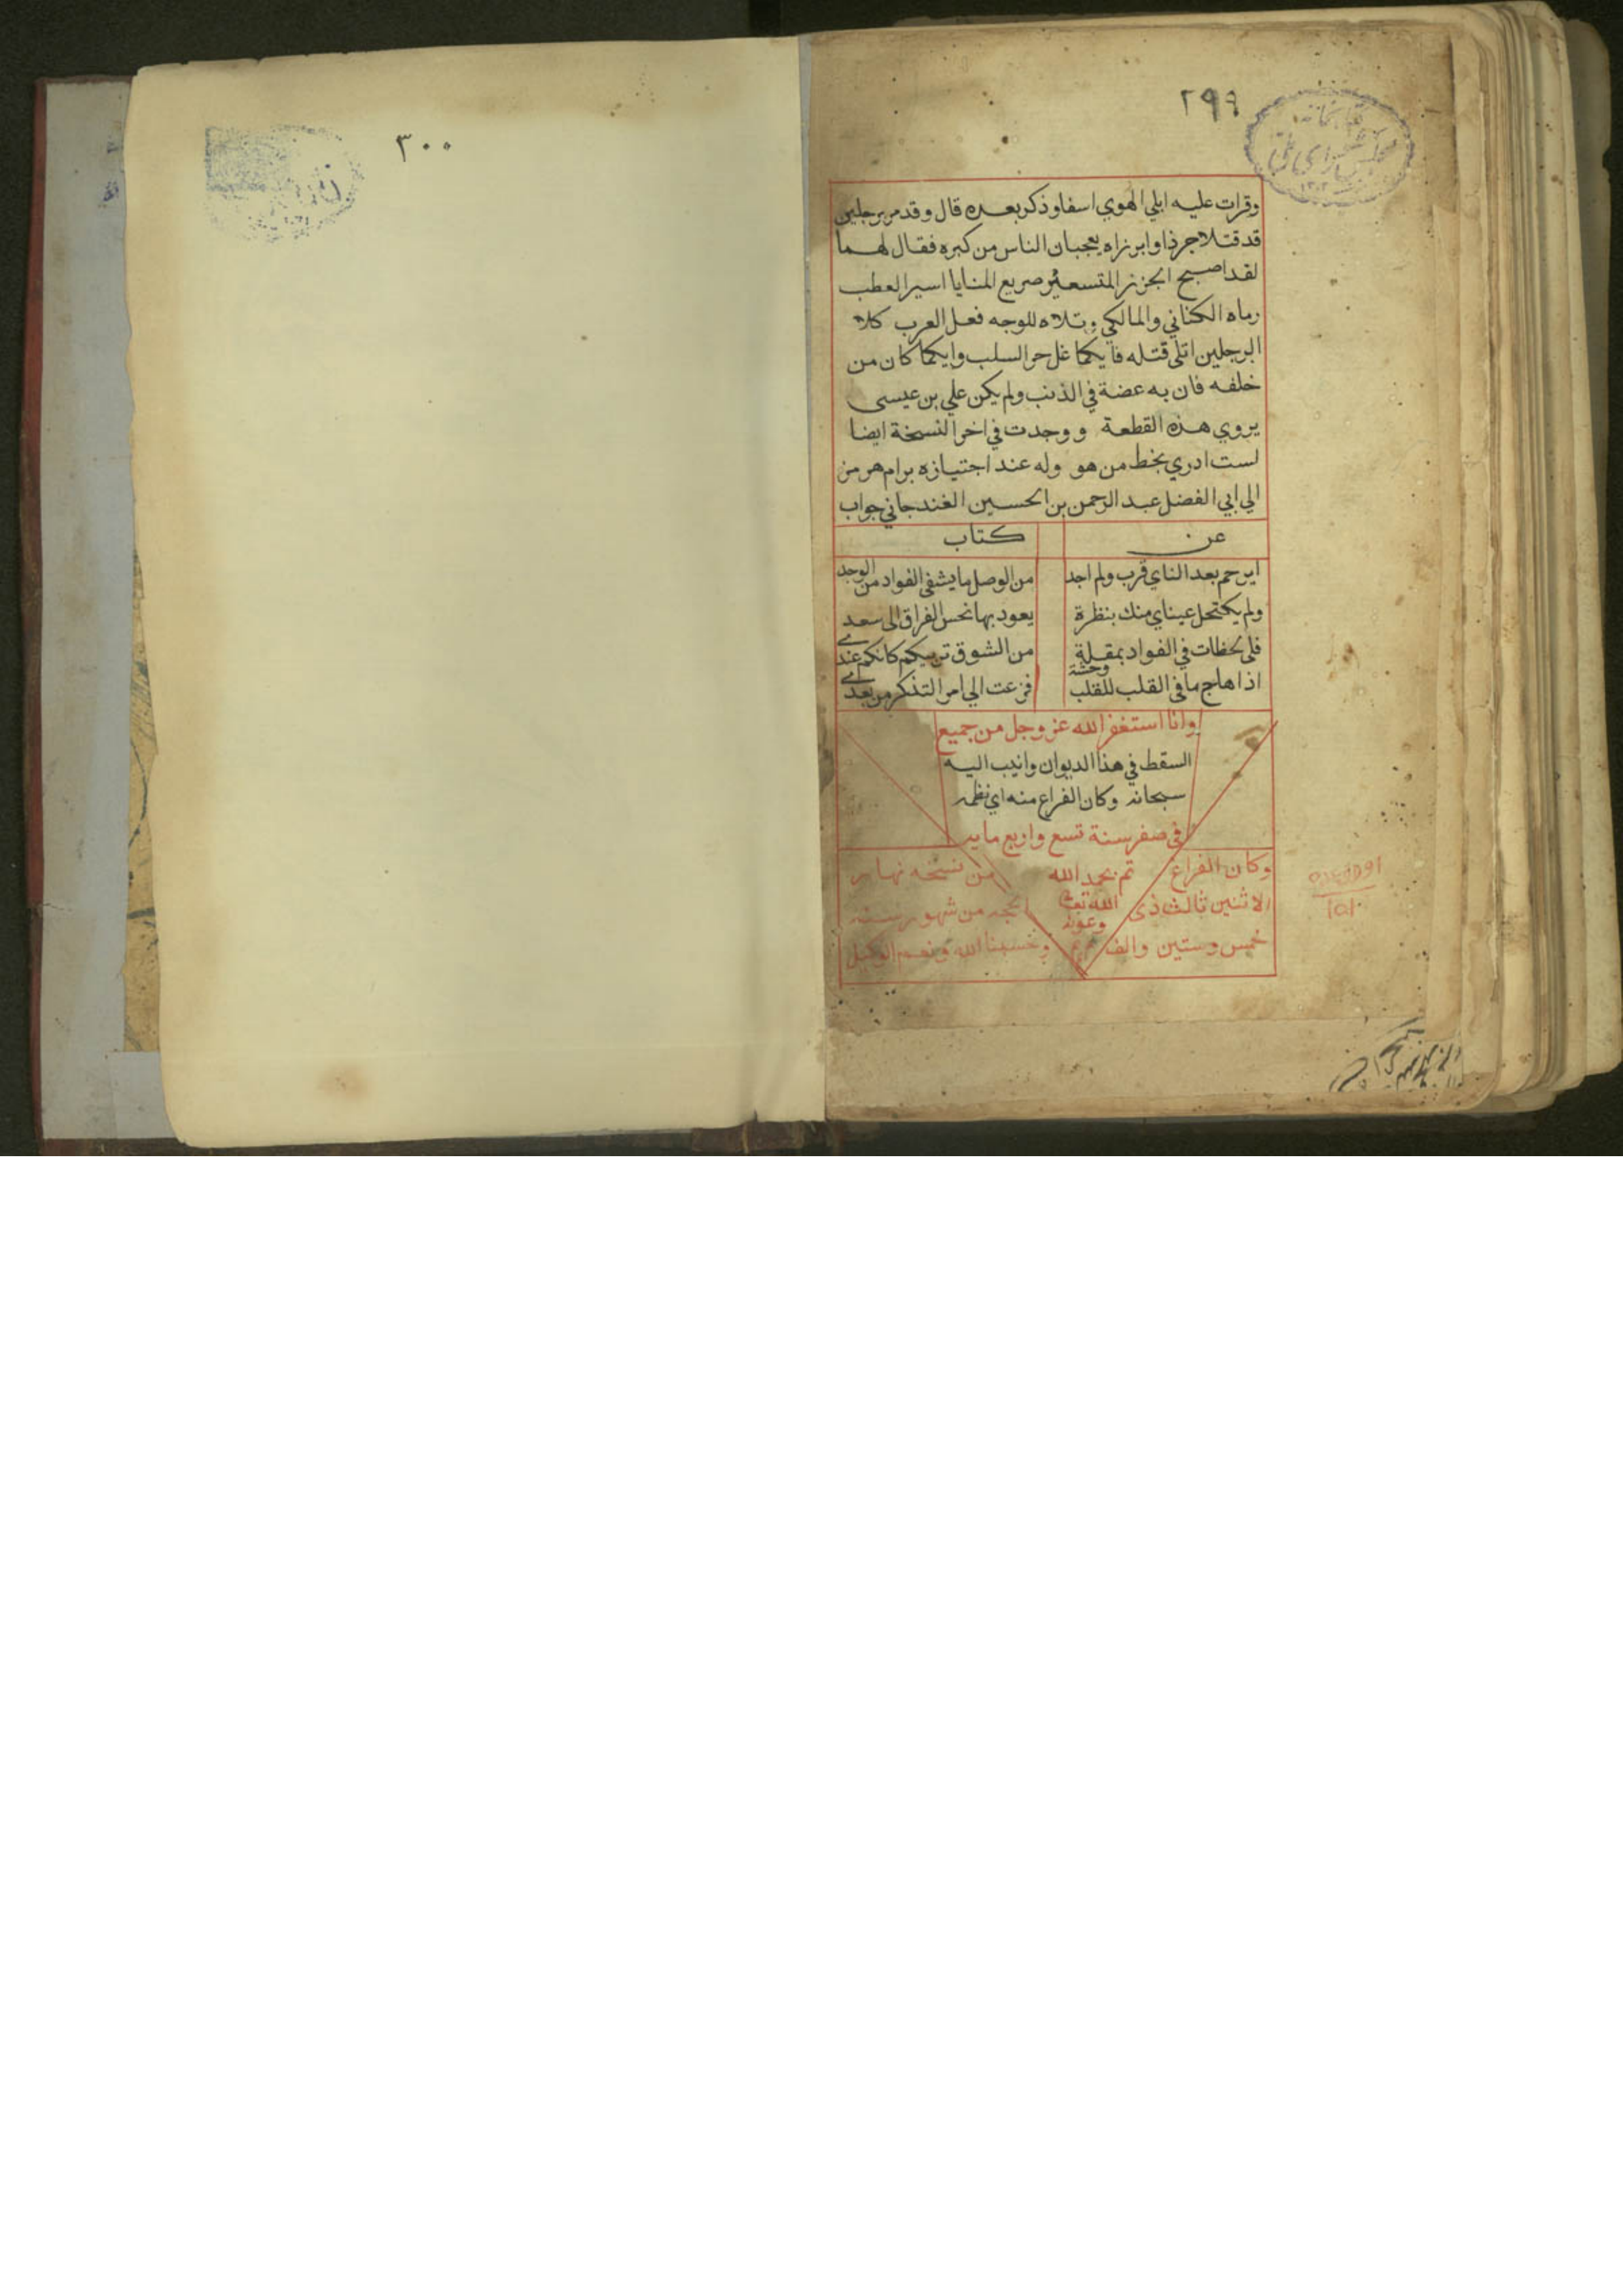 ٢٩٩
وقرات عليه ابلي الهوي اسفا وذكر بعده قال وقد مر برجلين
قد قتلا جرذا وابرزاه يعجبان الناس من كبره فقال لهما
لقد اصبح الجرز المتسعير صريع المنايا اسير العطب
رماه الكناني والمالكي وتلاه للوجه فعل العرب كلا
الرجلين اتلي قتله فايكما غل حر السلب وايكما كان من
خلفه فان به عضة في الذنب ولم يكن علي بن عيسى
يروي هذه القطعة ووجدت في اخر النسخة ايضا
لست ادري بخط من هو وله عند اجتيازه برام هرمز
الي ابي الفضل عبد الرحمن بن الحسين الغندجاني جواب
عن كتاب
ايرحم بعد الناي قرب ولم اجد من الوصل ما يشفى الفواد من الوجد
ولم يكتحل عيناي منك بنظرة يعود بها نحس الفراق الى سعد
فلى لحظات في الفواد بمقلة من الشوق تريكم كانكم عندي
اذا هاج ما فى القلب للقلب وحشة فزعت الي امر التذكر من بعدي
وانا استغفر الله عز وجل من جميع
السقط في هذا الديوان وانيب اليه
سبحانه وكان الفراغ منه اي نظمه
في صفر سنة تسع واربع مايه
وكان الفراغ من نسخه نهار
الاثنين ثالث ذى الحجه من شهور سنة
خمس وستين والف وحسبنا الله ونعم الوكيل
تم بحمد الله
الله تعالى
وعونه
م م
٣٠٠